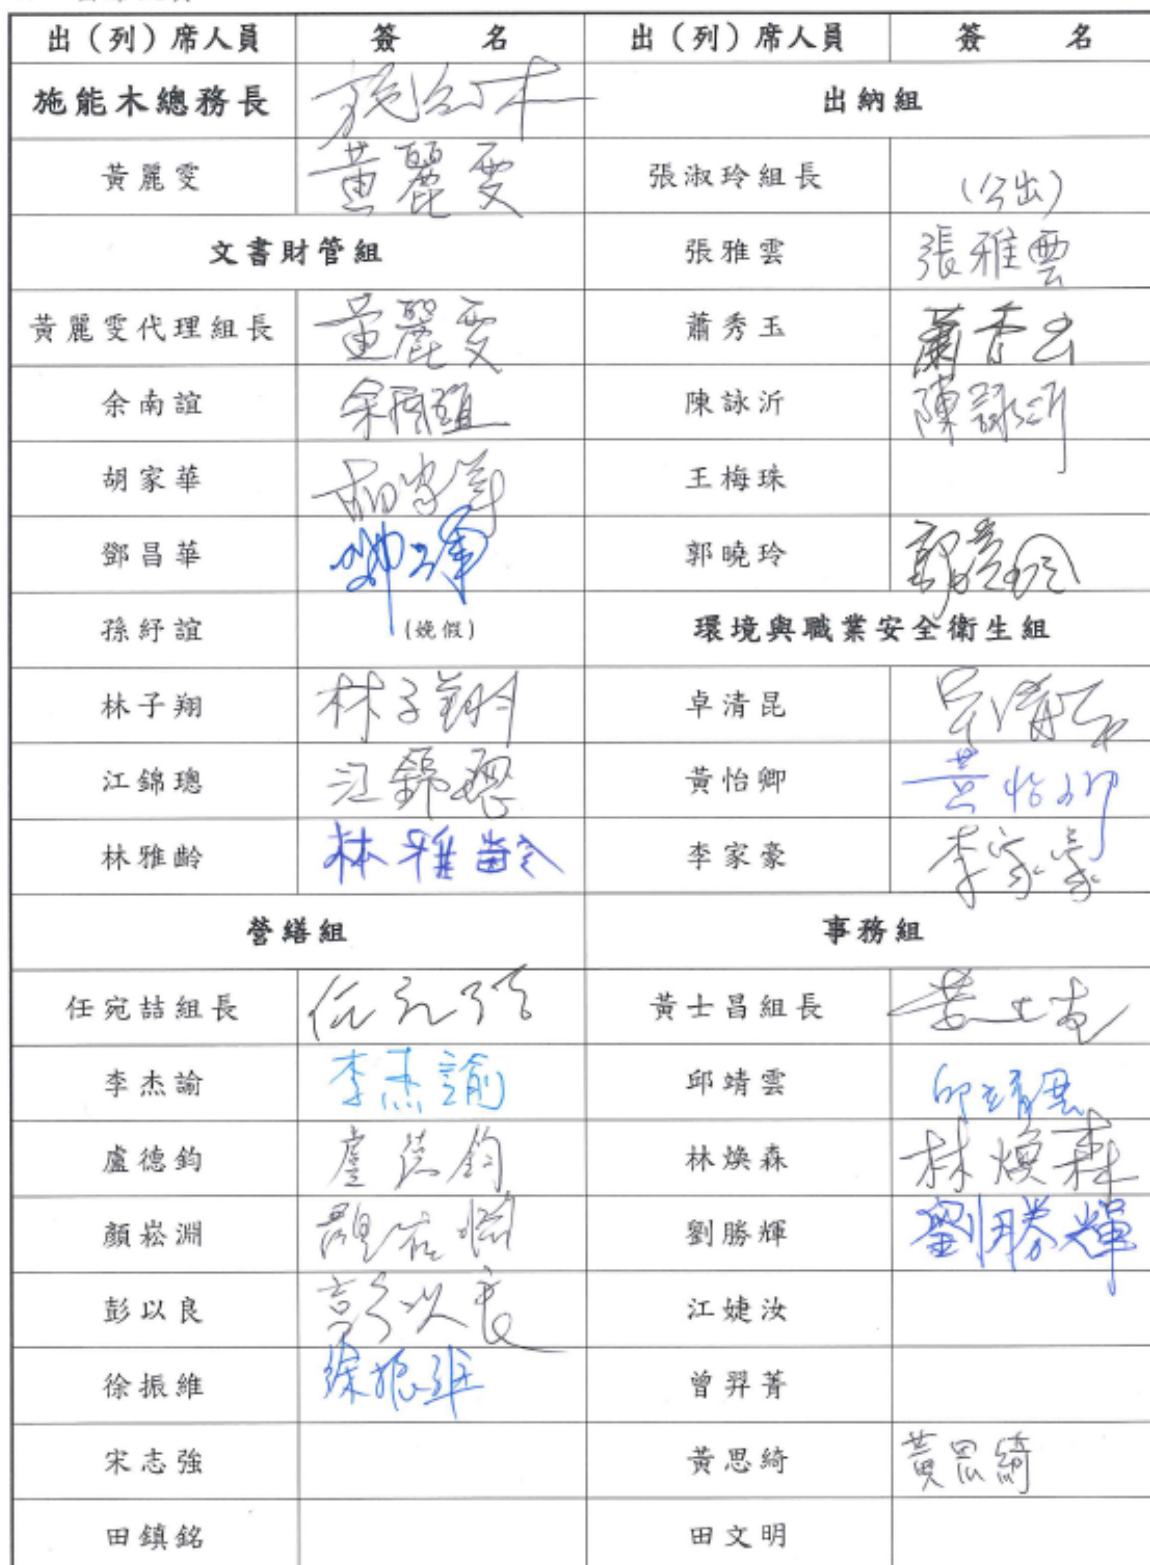 出（列）席人員 簽 名 出（列）席人員 簽 名
施能木總務長 施能木 出納組
黃麗雯 黃麗雯 張淑玲組長 (公出)
文書財管組 張雅雲 張雅雲
黃麗雯代理組長 黃麗雯 蕭秀玉 蕭秀玉
余南誼 余南誼 陳詠沂 陳詠沂
胡家華 胡家華 王梅珠
鄧昌華 郭曉玲 郭曉玲
孫紓誼 (娩假) 環境與職業安全衛生組
林子翔 林子翔 卓清昆 卓清昆
江錦璁 江錦璁 黃怡卿 黃怡卿
林雅齡 林雅齡 李家豪 李家豪
營繕組 事務組
任宛喆組長 黃士昌組長 黃士昌
李杰諭 李杰諭 邱靖雲 邱靖雲
盧德鈞 盧德鈞 林煥森 林煥森
顏崧淵 劉勝輝 劉勝輝
彭以良 彭以良 江婕汝
徐振維 徐振維 曾羿菁
宋志強 黃思綺 黃思綺
田鎮銘 田文明